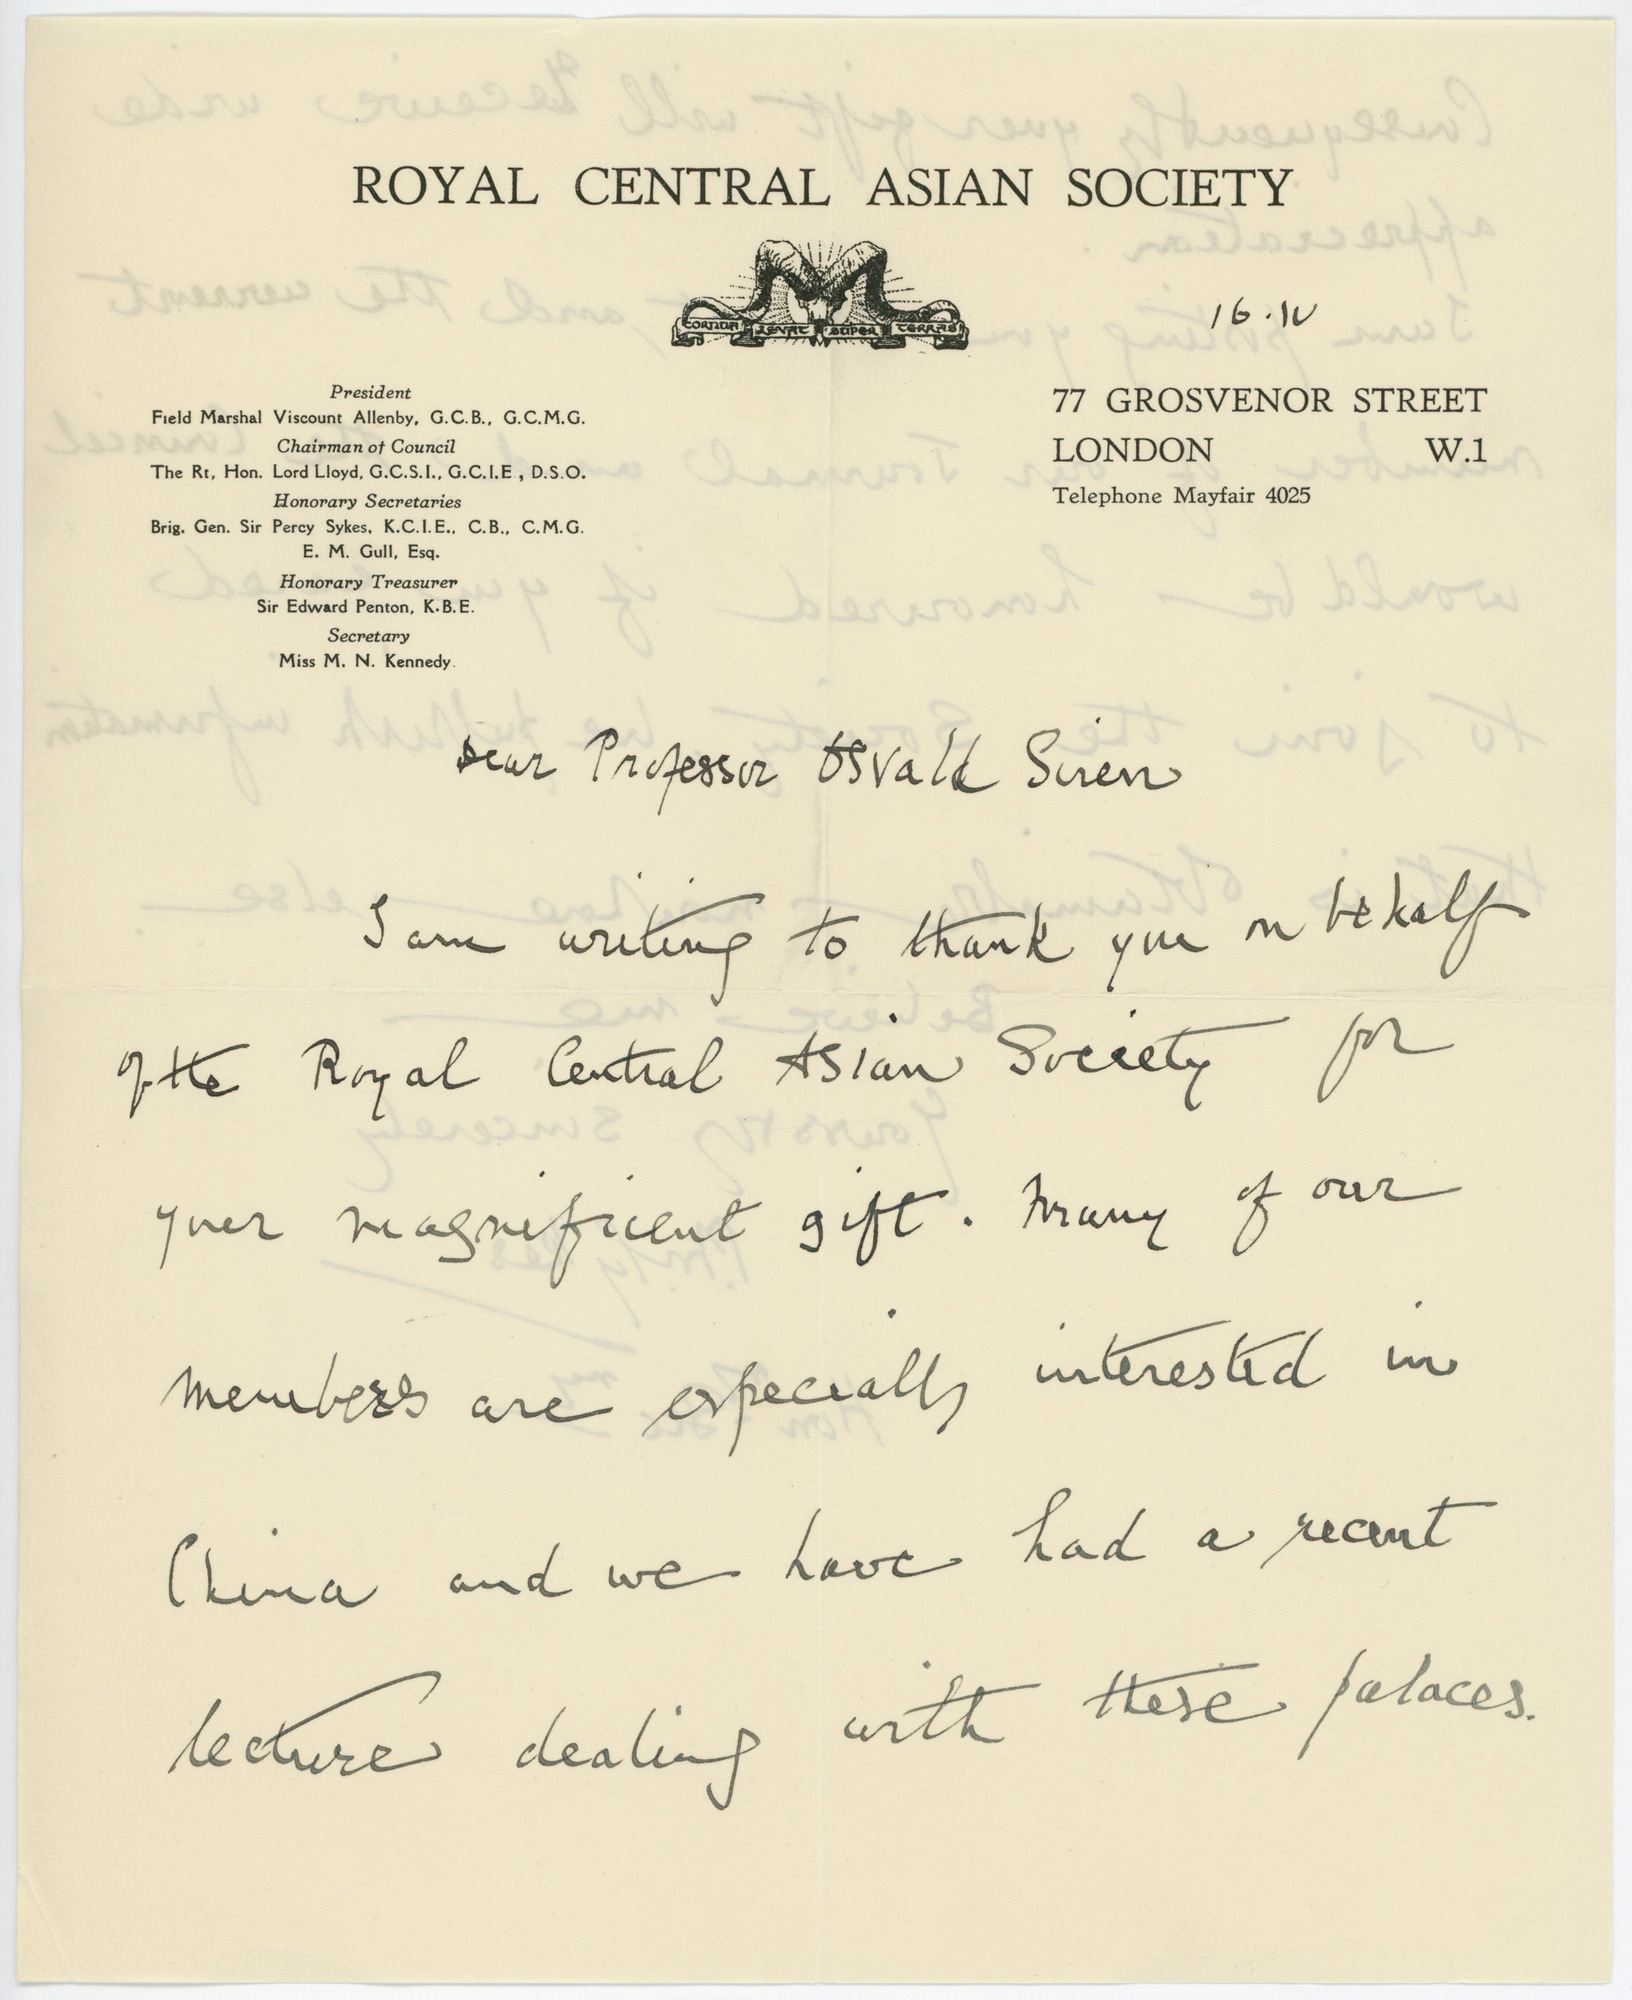 ROYAL CENTRAL ASIAN SOCIETY
CORNUA LEVAT SUPER TERRAS
16.IV
President
Field Marshal Viscount Allenby, G.C.B., G.C.M.G.
Chairman of Council
The Rt. Hon. Lord Lloyd, G.C.S.I., G.C.I.E., D.S.O.
Honorary Secretaries
Brig. Gen. Sir Percy Sykes, K.C.I.E., C.B., C.M.G.
E. M. Gull, Esq.
Honorary Treasurer
Sir Edward Penton, K.B.E.
Secretary
Miss M. N. Kennedy.
77 GROSVENOR STREET
LONDON W.1
Telephone Mayfair 4025
Dear Professor Osvald Siren
I am writing to thank you on behalf
of the Royal Central Asian Society for
your magnificent gift. Many of our
members are especially interested in
China and we have had a recent
lecture dealing with these palaces.